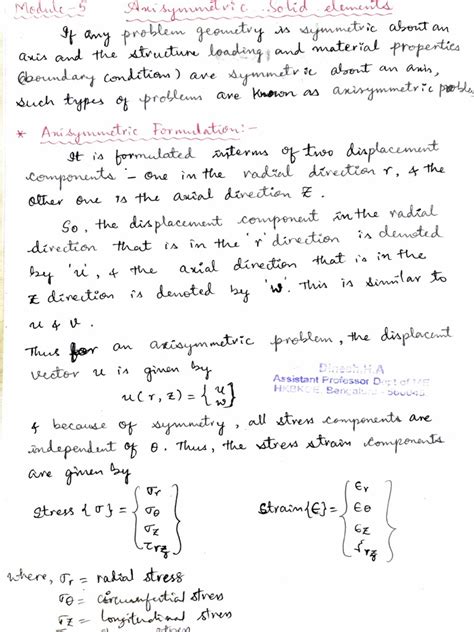 Module-5 Axisymmetric Solid elements
If any problem geometry is symmetric about an
axis and the structure loading and material properties
(boundary condition) are symmetric about an axis,
such types of problem are known as axisymmetric problem
* Axisymmetric Formulation:-
It is formulated interms of two displacement
components - one in the radial direction r, & the
other one is the axial direction Z.
So, the displacement component in the radial
direction that is in the 'r' direction is denoted
by 'u', & the axial direction that is in the
Z direction is denoted by 'w'. This is similar to
u & v.
Thus for an axisymmetric problem, the displacent
vector u is given by
u(r,z) = {u w}
Dinesh.H.A
Assistant Professor Dept of ME
HKBKCE, Bengaluru - 560045
& because of symmetry, all stress components are
independent of θ. Thus, the stress strain components
are given by
Stress {σ} = {σr σθ σz τrz}
Strain{ϵ} = {ϵr ϵθ ϵz γrz}
where, σr = radial stress
σθ = circumferential stress
σz = longitudinal stress